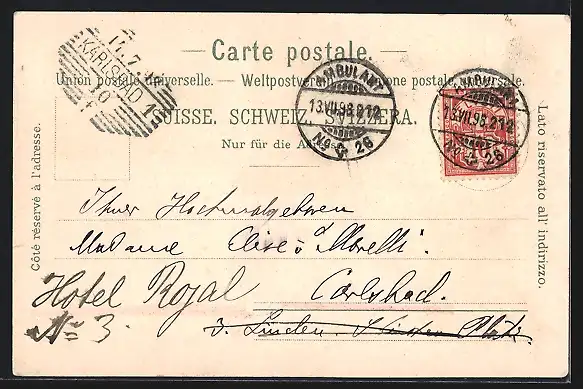 Carte postale.
Union postale universelle. — Weltpostverein. — Unione postale universale.
SUISSE. SCHWEIZ. SVIZZERA.
Nur für die Adresse.
Côté réservé à l'adresse.
Lato riservato all' indirizzo.
14.7
KARLSBAD 1
AMBULANT
13.VII.98.212
No 26
AMBULANT
13.VII.98.212
No 26
Ihrer Hochwolgeboren
Madame Elise
Hotel Royal Carlsbad.
No 3.
z. Linden.